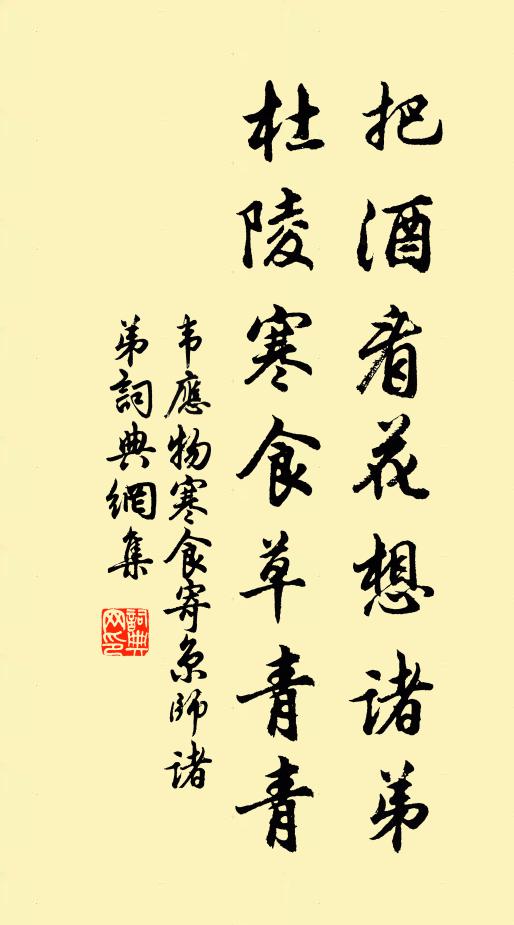 把酒看花想诸弟
杜陵寒食草青青
韦應物寒食寄京師诸
弟詞典網集
詞典
网印